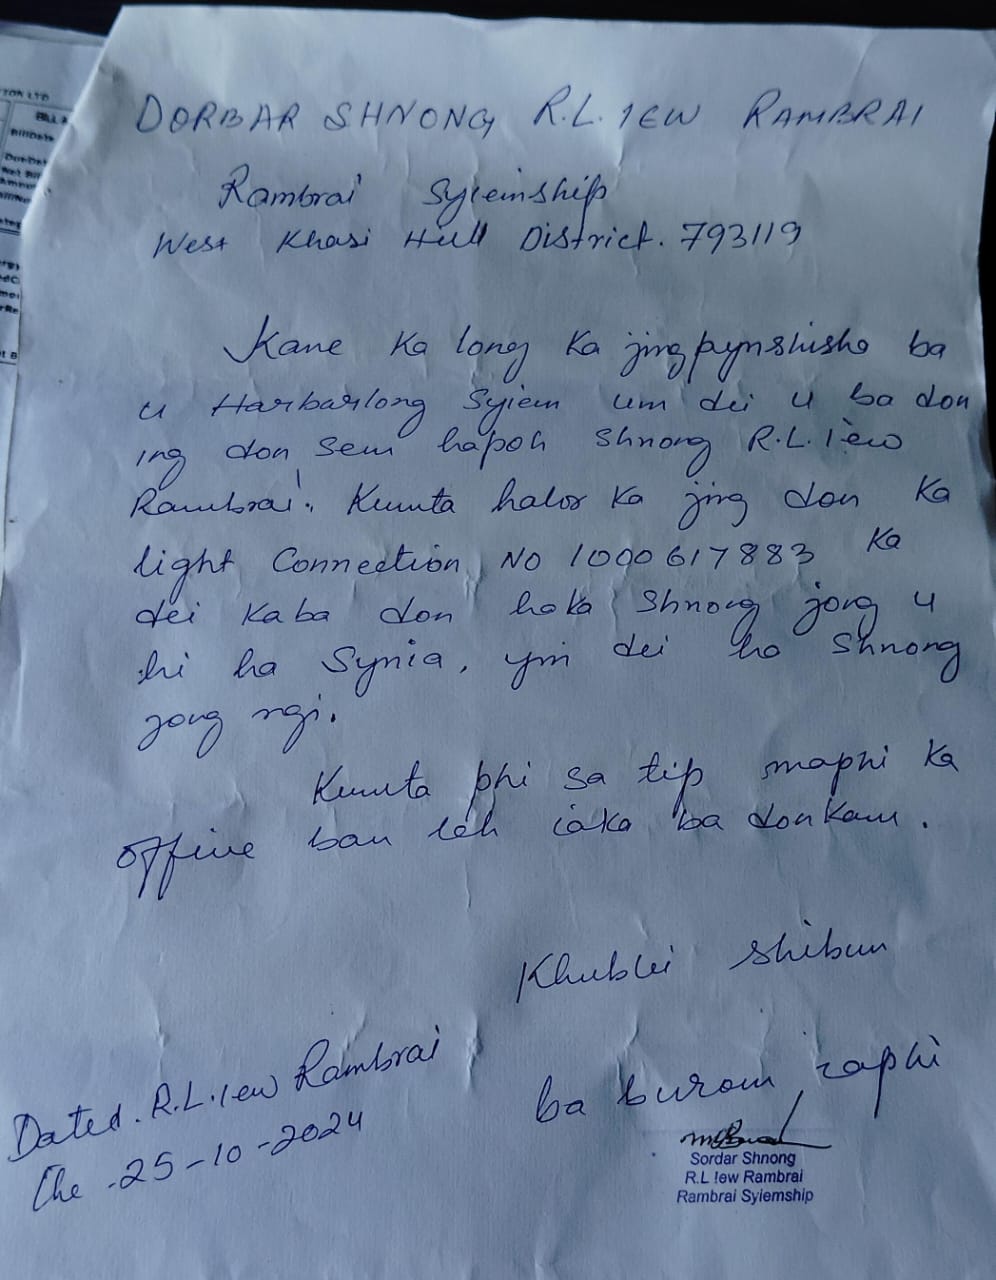 DORBAR SHNONG R.L. IEW RAMBRAI
Rambrai Syiemship
West Khasi Hill District. 793119
Kane ka long ka jingpynshisha ba
u Harbarlong Syiem um dei u ba don
ing don sem hapoh shnong R.L. Iew
Rambrai. Kumta halor ka jing don ka
light Connection No 1000617883 ka
dei kaba don haka shnong jong u
hi ha Synia, ym dei ha shnong
jong ngi.
Kumta phi sa tip maphi ka
office ban leh iaka ba donkam.
Khublei shibun
ba burom iaphi
Dated. R.L. Iew Rambrai
The .25-10-2024
Sordar Shnong
R.L Iew Rambrai
Rambrai Syiemship